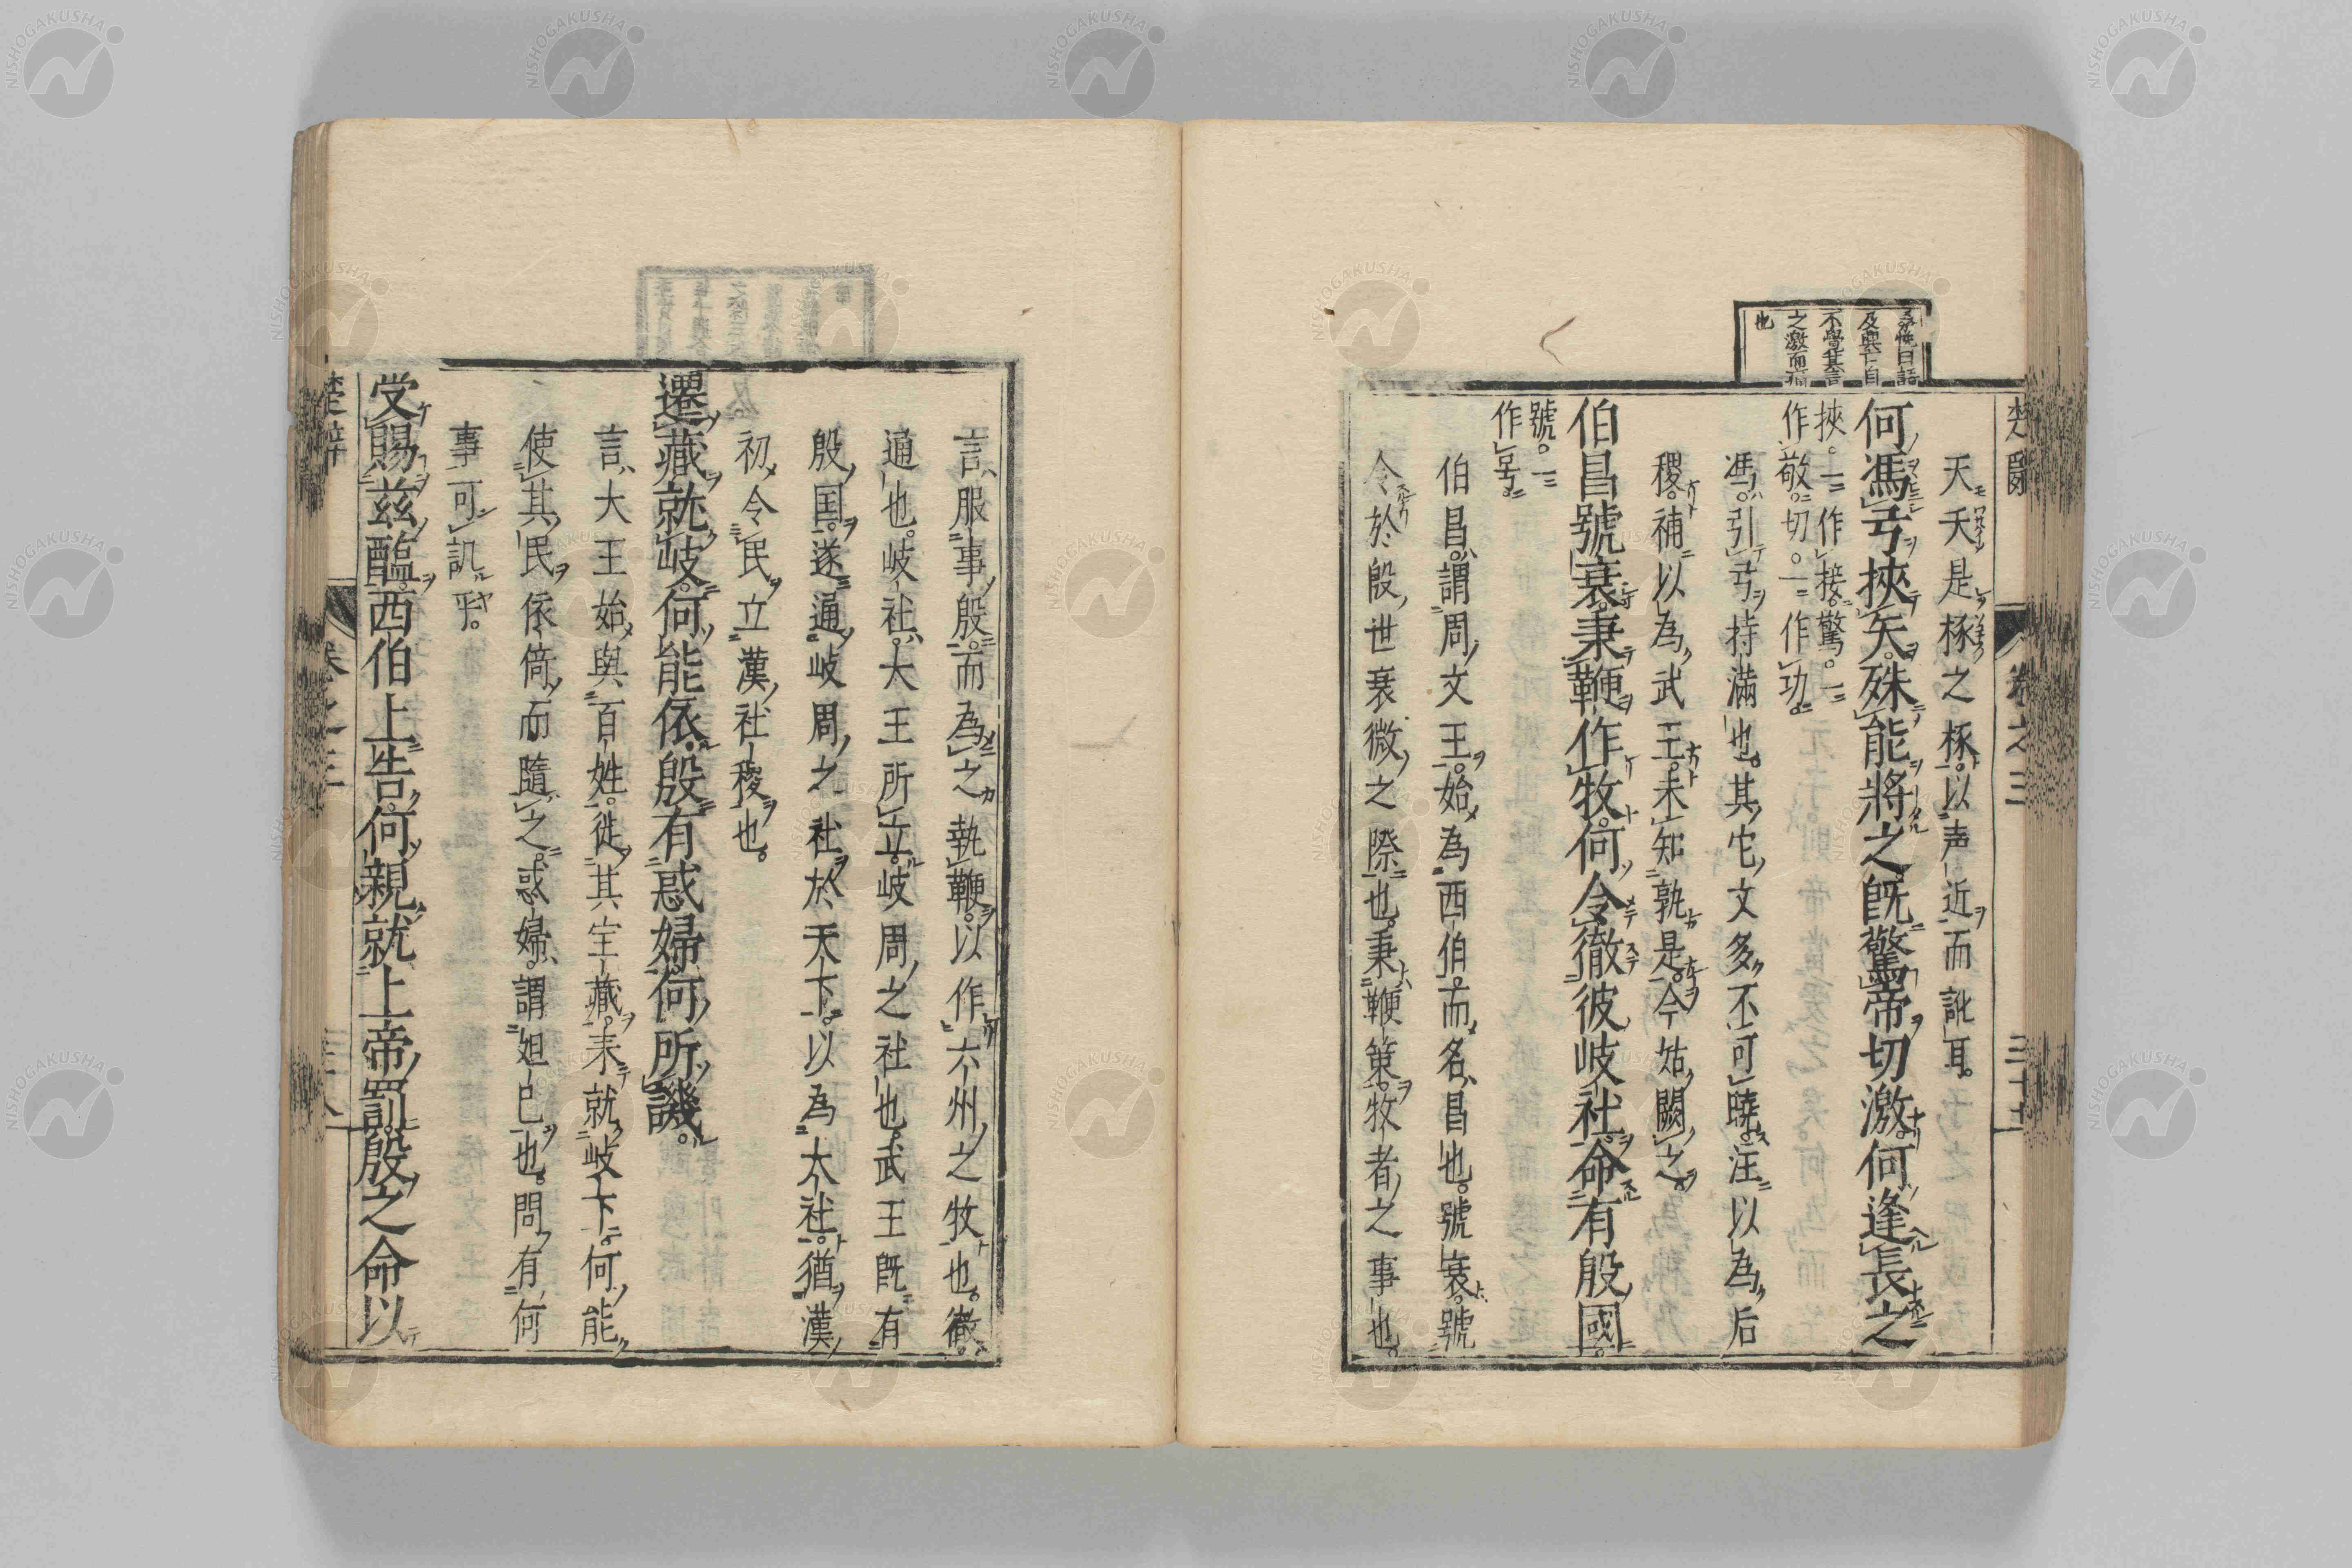 楚辭 卷之三 三十七
孫悅曰語
及與上自
不覺其言
之激而痛
也
天夭是椓之椓以声近而訛耳
何馮弓挾矢殊能將之既驚帝切激何逢長之
挾一作接驚一
作敬切一作功
馮引弓持滿也其它文多不可曉注以為后
稷補以為武王未知孰是今姑闕之
伯昌號衰秉鞭作牧何令徹彼岐社命有殷國
號一
作号
伯昌謂周文王始為西伯而名昌也號衰號
令於殷世衰微之際也秉鞭策牧者之事也
言服事殷而為之執鞭以作六州之牧也徹
通也岐社大王所立岐周之社也武王既有
殷国遂通岐周之社於天下以為大社猶漢
初令民立漢社稷也
遷藏就岐何能依殷有惑婦何所譏
言大王始與百姓徙其宝藏来就岐下何能
使其民依倚而隨之惑婦謂妲己也問有何
事可訊乎
受賜茲醢西伯上告何親就上帝罰殷之命以
楚辭 卷之三
NISHOGAKUSHA